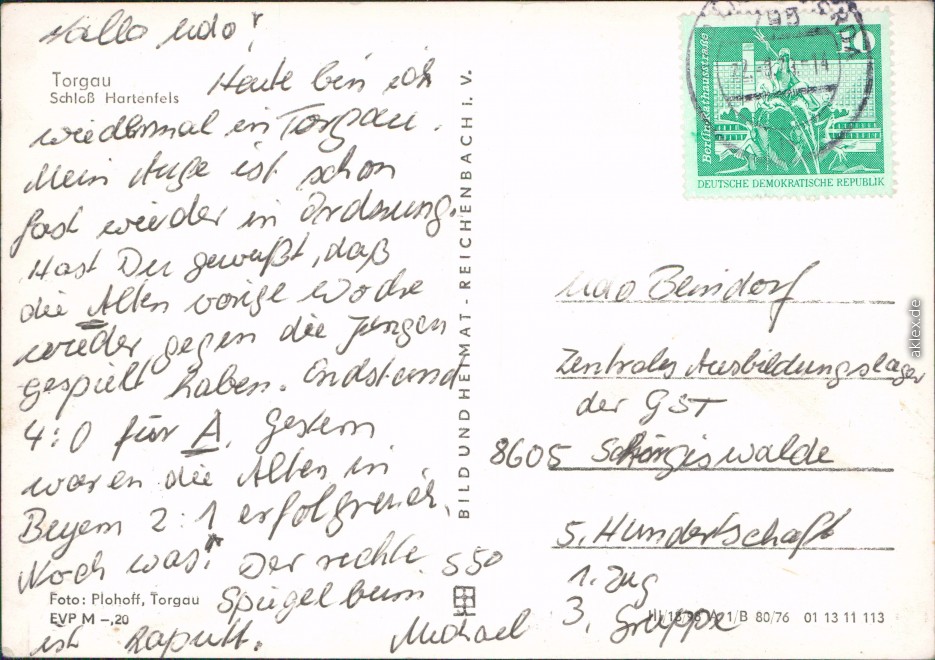 Hallo Udo!
Torgau
Schloß Hartenfels
Heute bin ich
wiedermal in Torgau.
Mein Auge ist schon
fast wieder in Ordnung.
Hast Du gewußt, daß
die Alten vorige Woche
wieder gegen die Jungen
gespielt haben. Endstand
4:0 für A. Gestern
waren die Alten in
Beyern 2:1 erfolgreich.
Noch was! Der rechte S50
Spiegel beim
ist kaputt. Michael
Foto: Plohoff, Torgau
EVP M –,20
BILD UND HEIMAT - REICHENBACH i. V.
10
Berlin, Rathausstraße
DEUTSCHE DEMOKRATISCHE REPUBLIK
Udo Beindorf
Zentrales Ausbildungslager
der GST
8605 Schirgiswalde
5. Hundertschaft
1. Zug
3. Gruppe
A 1/B 80/76 01 13 11 113
aklex.de